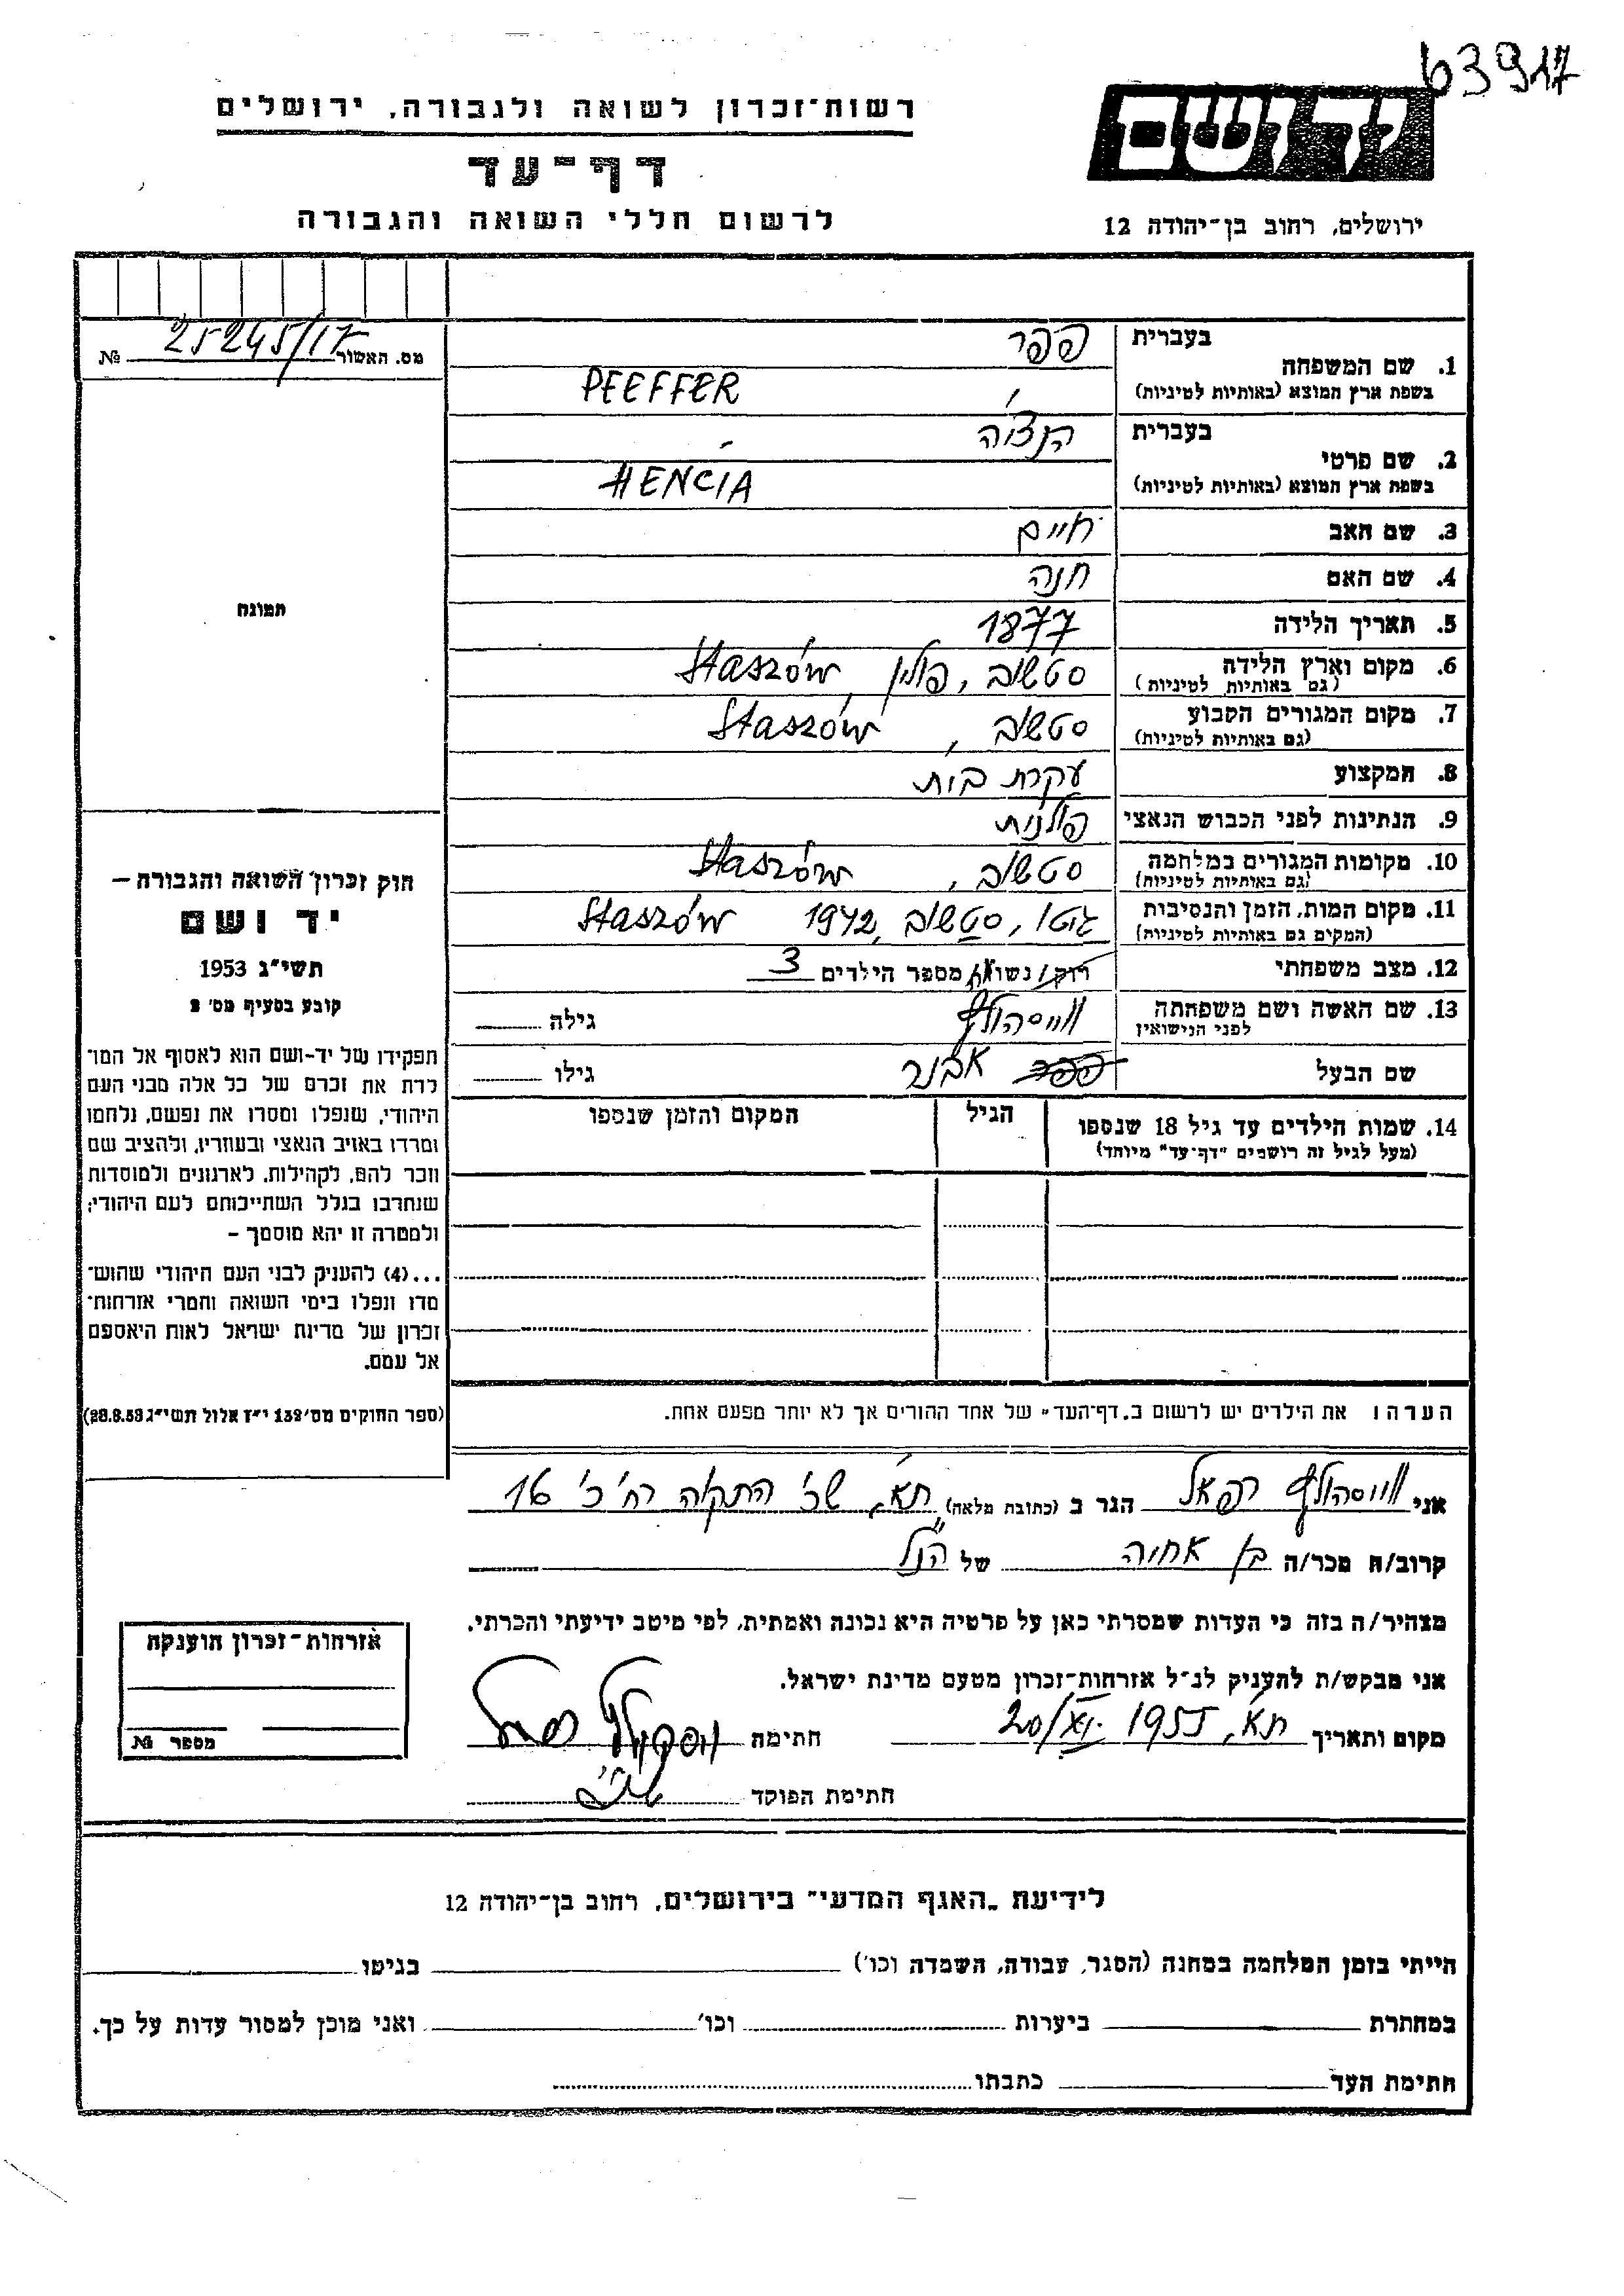 63917
ידושם
רשות־זכרון לשואה ולגבורה, ירושלים
דף־עד
לרשום חללי השואה והגבורה
ירושלים, רחוב בן־יהודה 12
מס. האשור 25245/17 №
תמונה
חוק זכרון השואה והגבורה –
יד ושם
תשי"ג 1953
קובע בסעיף מס' 2
תפקידו של יד-ושם הוא לאסוף אל המו־
לדת את זכרם של כל אלה מבני העם
היהודי, שנפלו ומסרו את נפשם, נלחמו
ומרדו באויב הנאצי ובעוזריו, ולהציב שם
וזכר להם, לקהילות, לארגונים ולמוסדות
שנחרבו בגלל השתייכותם לעם היהודי;
ולמטרה זו יהא מוסמך –
...(4) להעניק לבני העם היהודי שהוש־
מדו ונפלו בימי השואה והמרי אזרחות־
זכרון של מדינת ישראל לאות היאספם
אל עמם.
(ספר החוקים מס' 132 י"ז אלול תשי"ג 28.8.53)
בעברית פפר
1. שם המשפחה
בשפת ארץ המוצא (באותיות לטיניות) PFEFFER
בעברית הנציה
2. שם פרטי
בשפת ארץ המוצא (באותיות לטיניות) HENCIA
3. שם האב חיים
4. שם האם חנה
5. תאריך הלידה 1877
6. מקום וארץ הלידה סטשוב, פולין, Staszów
(גם באותיות לטיניות)
7. מקום המגורים הקבוע סטשוב, Staszów
(גם באותיות לטיניות)
8. המקצוע עקרת בית
9. הנתינות לפני הכבוש הנאצי פולנית
10. מקומות המגורים במלחמה סטשוב, Staszów
(גם באותיות לטיניות)
11. מקום המות, הזמן והנסיבות גיטו, סטשוב, 1942 Staszów
(המקום גם באותיות לטיניות)
12. מצב משפחתי רווק/נשואה/מספר הילדים 3
13. שם האשה ושם משפחתה ווייסהולץ גילה
לפני הנישואין
שם הבעל פפר אבנר גילו
14. שמות הילדים עד גיל 18 שנספו הגיל המקום והזמן שנספו
(מעל לגיל זה רושמים "דף־עד" מיוחד)
הערה: את הילדים יש לרשום ב„דף־העד" של אחד ההורים אך לא יותר מפעם אחת.
אני ווייסהולץ רפאל הגר ב (כתובת מלאה) תא, שכ' התקוה רח' כ' 16
קרוב/ה מכר/ה בן אחיה של הנ"ל
מצהיר/ה בזה כי העדות שמסרתי כאן על פרטיה היא נכונה ואמתית, לפי מיטב ידיעתי והכרתי.
אני מבקש/ת להעניק לנ"ל אזרחות־זכרון מטעם מדינת ישראל.
מקום ותאריך תא, 20/XI. 1955 חתימה
חתימת הפוקד
אזרחות־זכרון הוענקה
מספר №
לידיעת „האגף המדעי" בירושלים, רחוב בן־יהודה 12
הייתי בזמן המלחמה במחנה (הסגר, עבודה, השמדה וכו') בגיטו
במחתרת ביערות וכו' ואני מוכן למסור עדות על כך.
חתימת העד כתבתו